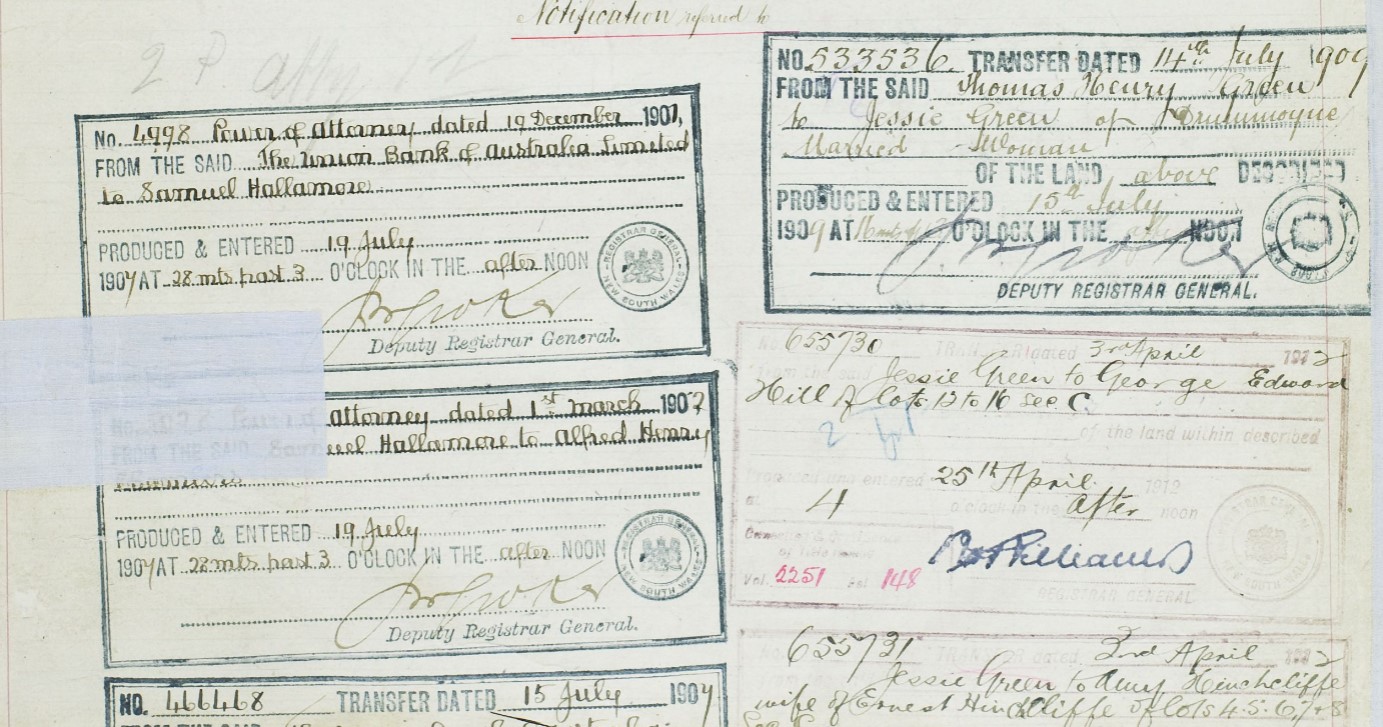 Notification referred to
No. 4998 Power of Attorney dated 19 December 1901,
FROM THE SAID The Union Bank of Australia Limited
to Samuel Hallamore
PRODUCED & ENTERED 19 July
1907 AT 28 mts past 3 O'CLOCK IN THE after NOON
REGISTRAR GENERAL
NEW SOUTH WALES
Deputy Registrar General.
Attorney dated 1st March 1907
FROM THE SAID Samuel Hallamore to Alfred Henry
PRODUCED & ENTERED 19 July
1907 AT 28 mts past 3 O'CLOCK IN THE after NOON
REGISTRAR GENERAL
NEW SOUTH WALES
Deputy Registrar General.
NO. 466468 TRANSFER DATED 15 July 1907
NO. 533536. TRANSFER DATED 14th July 1909
FROM THE SAID Thomas Henry Green
to Jessie Green of Drummoyne
Married Woman
OF THE LAND above DESCRIBED
PRODUCED & ENTERED 15th July
1909 AT O'CLOCK IN THE after NOON
DEPUTY REGISTRAR GENERAL.
No 655730 TRANSFER dated 3rd April 1912
from the said Jessie Green to George Edward
Hill of lots 12 to 16 sec C.
of the land within described
Produced and entered 25th April 1912
at 4 o'clock in the After noon
Vol. 2251 Fol 148
REGISTRAR GENERAL
No 655731 TRANSFER dated 3rd April 1912
Jessie Green to Amy Hinchcliffe
wife of Ernest Hinchcliffe of lots 4.5.6.7+8